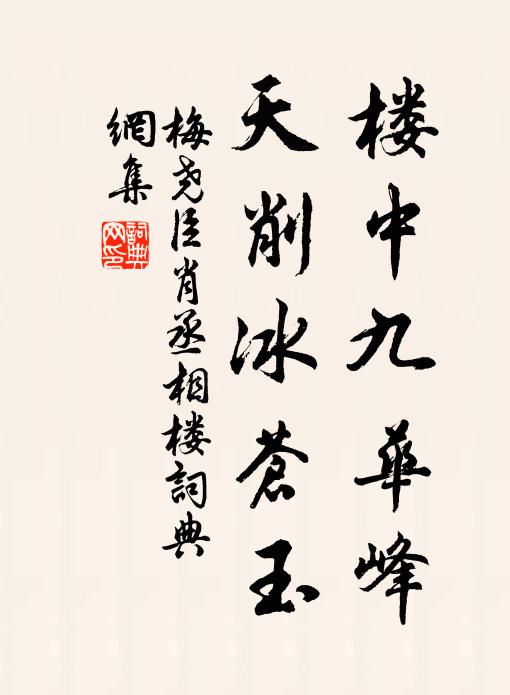 楼中九华峰
天削冰苍玉
梅尧臣肖丞相楼词典
網集
詞典網印